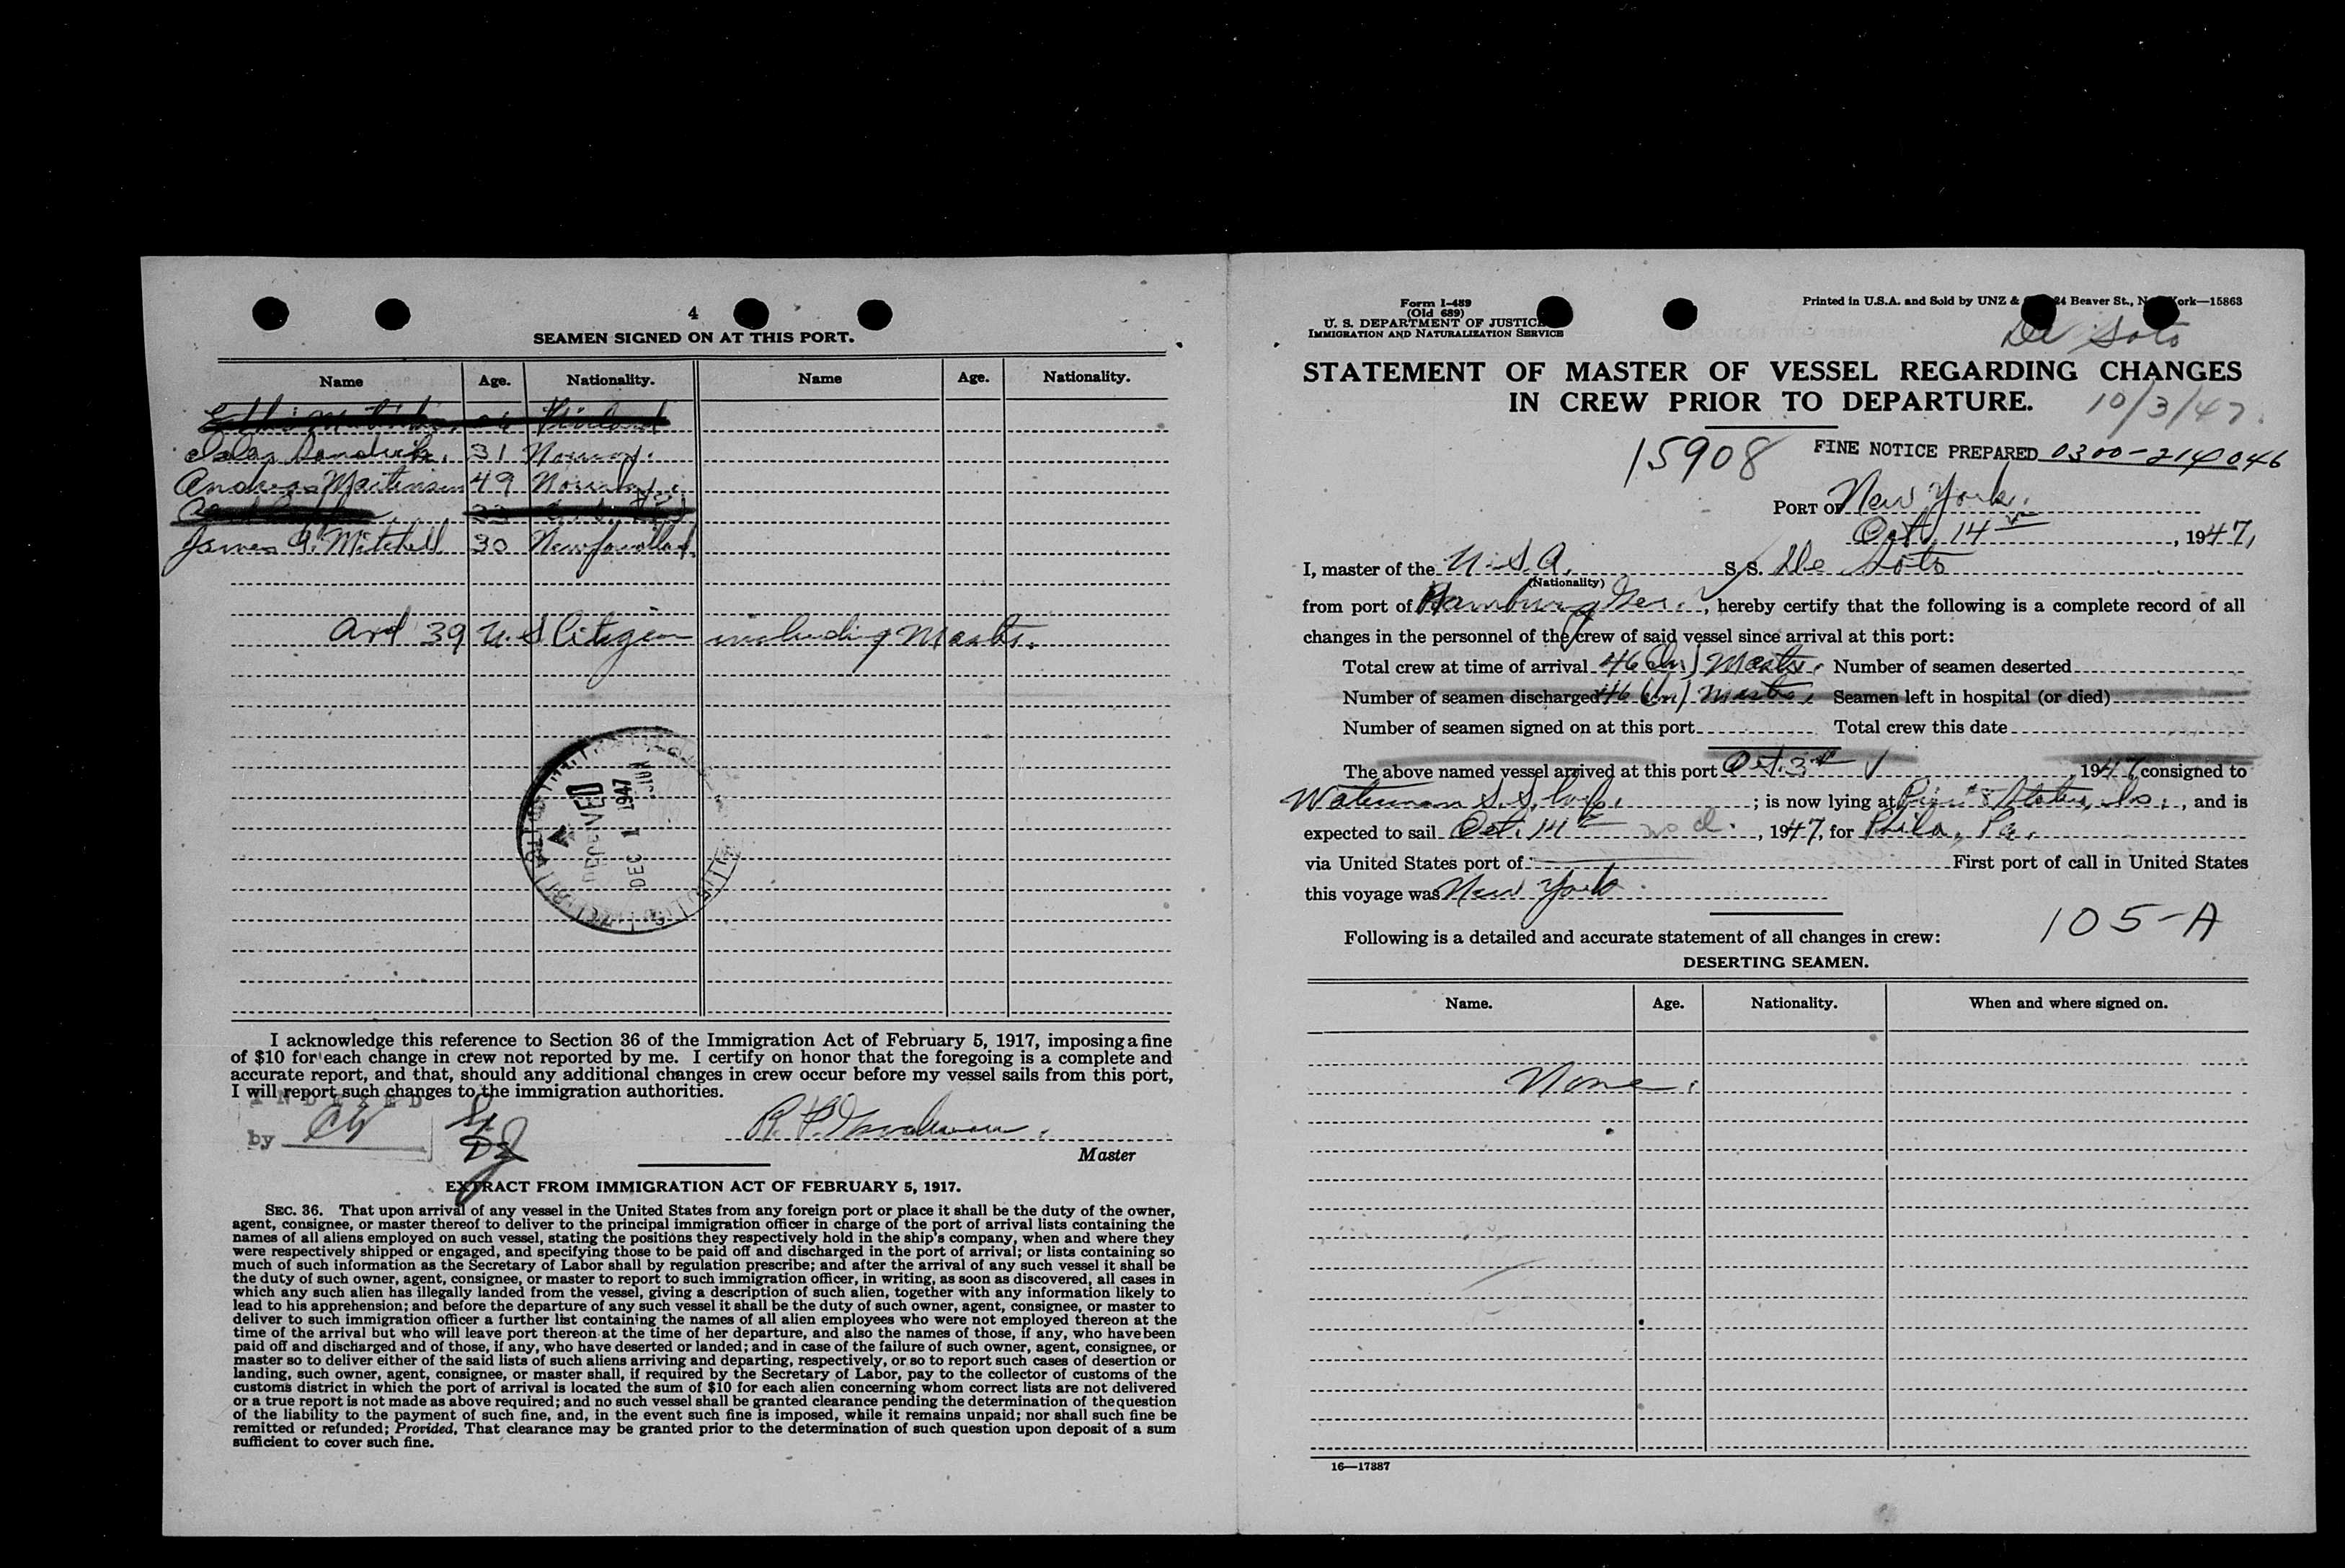 4
SEAMEN SIGNED ON AT THIS PORT.
Name Age. Nationality. Name Age. Nationality.
31 Norway.
Andreas Martinsen 49 Norway.
James G. Mitchell 30 Newfoundland.
And 39 U.S Citizen including Master.
RECEIVED
DEC 1 1947
I acknowledge this reference to Section 36 of the Immigration Act of February 5, 1917, imposing a fine
of $10 for each change in crew not reported by me. I certify on honor that the foregoing is a complete and
accurate report, and that, should any additional changes in crew occur before my vessel sails from this port,
I will report such changes to the immigration authorities.
INDEXED
by
Master
EXTRACT FROM IMMIGRATION ACT OF FEBRUARY 5, 1917.
SEC. 36. That upon arrival of any vessel in the United States from any foreign port or place it shall be the duty of the owner,
agent, consignee, or master thereof to deliver to the principal immigration officer in charge of the port of arrival lists containing the
names of all aliens employed on such vessel, stating the positions they respectively hold in the ship's company, when and where they
were respectively shipped or engaged, and specifying those to be paid off and discharged in the port of arrival; or lists containing so
much of such information as the Secretary of Labor shall by regulation prescribe; and after the arrival of any such vessel it shall be
the duty of such owner, agent, consignee, or master to report to such immigration officer, in writing, as soon as discovered, all cases in
which any such alien has illegally landed from the vessel, giving a description of such alien, together with any information likely to
lead to his apprehension; and before the departure of any such vessel it shall be the duty of such owner, agent, consignee, or master to
deliver to such immigration officer a further list containing the names of all alien employees who were not employed thereon at the
time of the arrival but who will leave port thereon at the time of her departure, and also the names of those, if any, who have been
paid off and discharged and of those, if any, who have deserted or landed; and in case of the failure of such owner, agent, consignee, or
master so to deliver either of the said lists of such aliens arriving and departing, respectively, or so to report such cases of desertion or
landing, such owner, agent, consignee, or master shall, if required by the Secretary of Labor, pay to the collector of customs of the
customs district in which the port of arrival is located the sum of $10 for each alien concerning whom correct lists are not delivered
or a true report is not made as above required; and no such vessel shall be granted clearance pending the determination of the question
of the liability to the payment of such fine, and, in the event such fine is imposed, while it remains unpaid; nor shall such fine be
remitted or refunded; Provided, That clearance may be granted prior to the determination of such question upon deposit of a sum
sufficient to cover such fine.
Form I-489
(Old 689)
U. S. DEPARTMENT OF JUSTICE
IMMIGRATION AND NATURALIZATION SERVICE
Printed in U.S.A. and Sold by UNZ & 24 Beaver St., N ork—15863
De Soto
STATEMENT OF MASTER OF VESSEL REGARDING CHANGES
IN CREW PRIOR TO DEPARTURE.
10/3/47.
15908 FINE NOTICE PREPARED 0300-214046
PORT OF New York.
Oct. 14, 1947,
I, master of the U.S.A. S.S. De Soto
(Nationality)
from port of Hamburg Ger., hereby certify that the following is a complete record of all
changes in the personnel of the crew of said vessel since arrival at this port:
Total crew at time of arrival 46 Master. Number of seamen deserted
Number of seamen discharged 46 Master. Seamen left in hospital (or died)
Number of seamen signed on at this port Total crew this date
The above named vessel arrived at this port Oct. 3 1947 consigned to
Waterman S.S. Corp. ; is now lying at , and is
expected to sail Oct. 14 , 1947, for Phila, Pa.
via United States port of First port of call in United States
this voyage was New York.
105-A
Following is a detailed and accurate statement of all changes in crew:
DESERTING SEAMEN.
Name. Age. Nationality. When and where signed on.
None.
16—17387